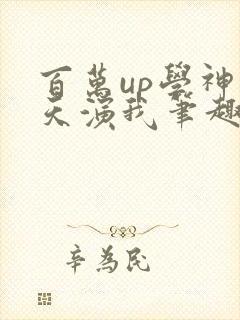 百萬up學神
天演我筆趣
辛為民